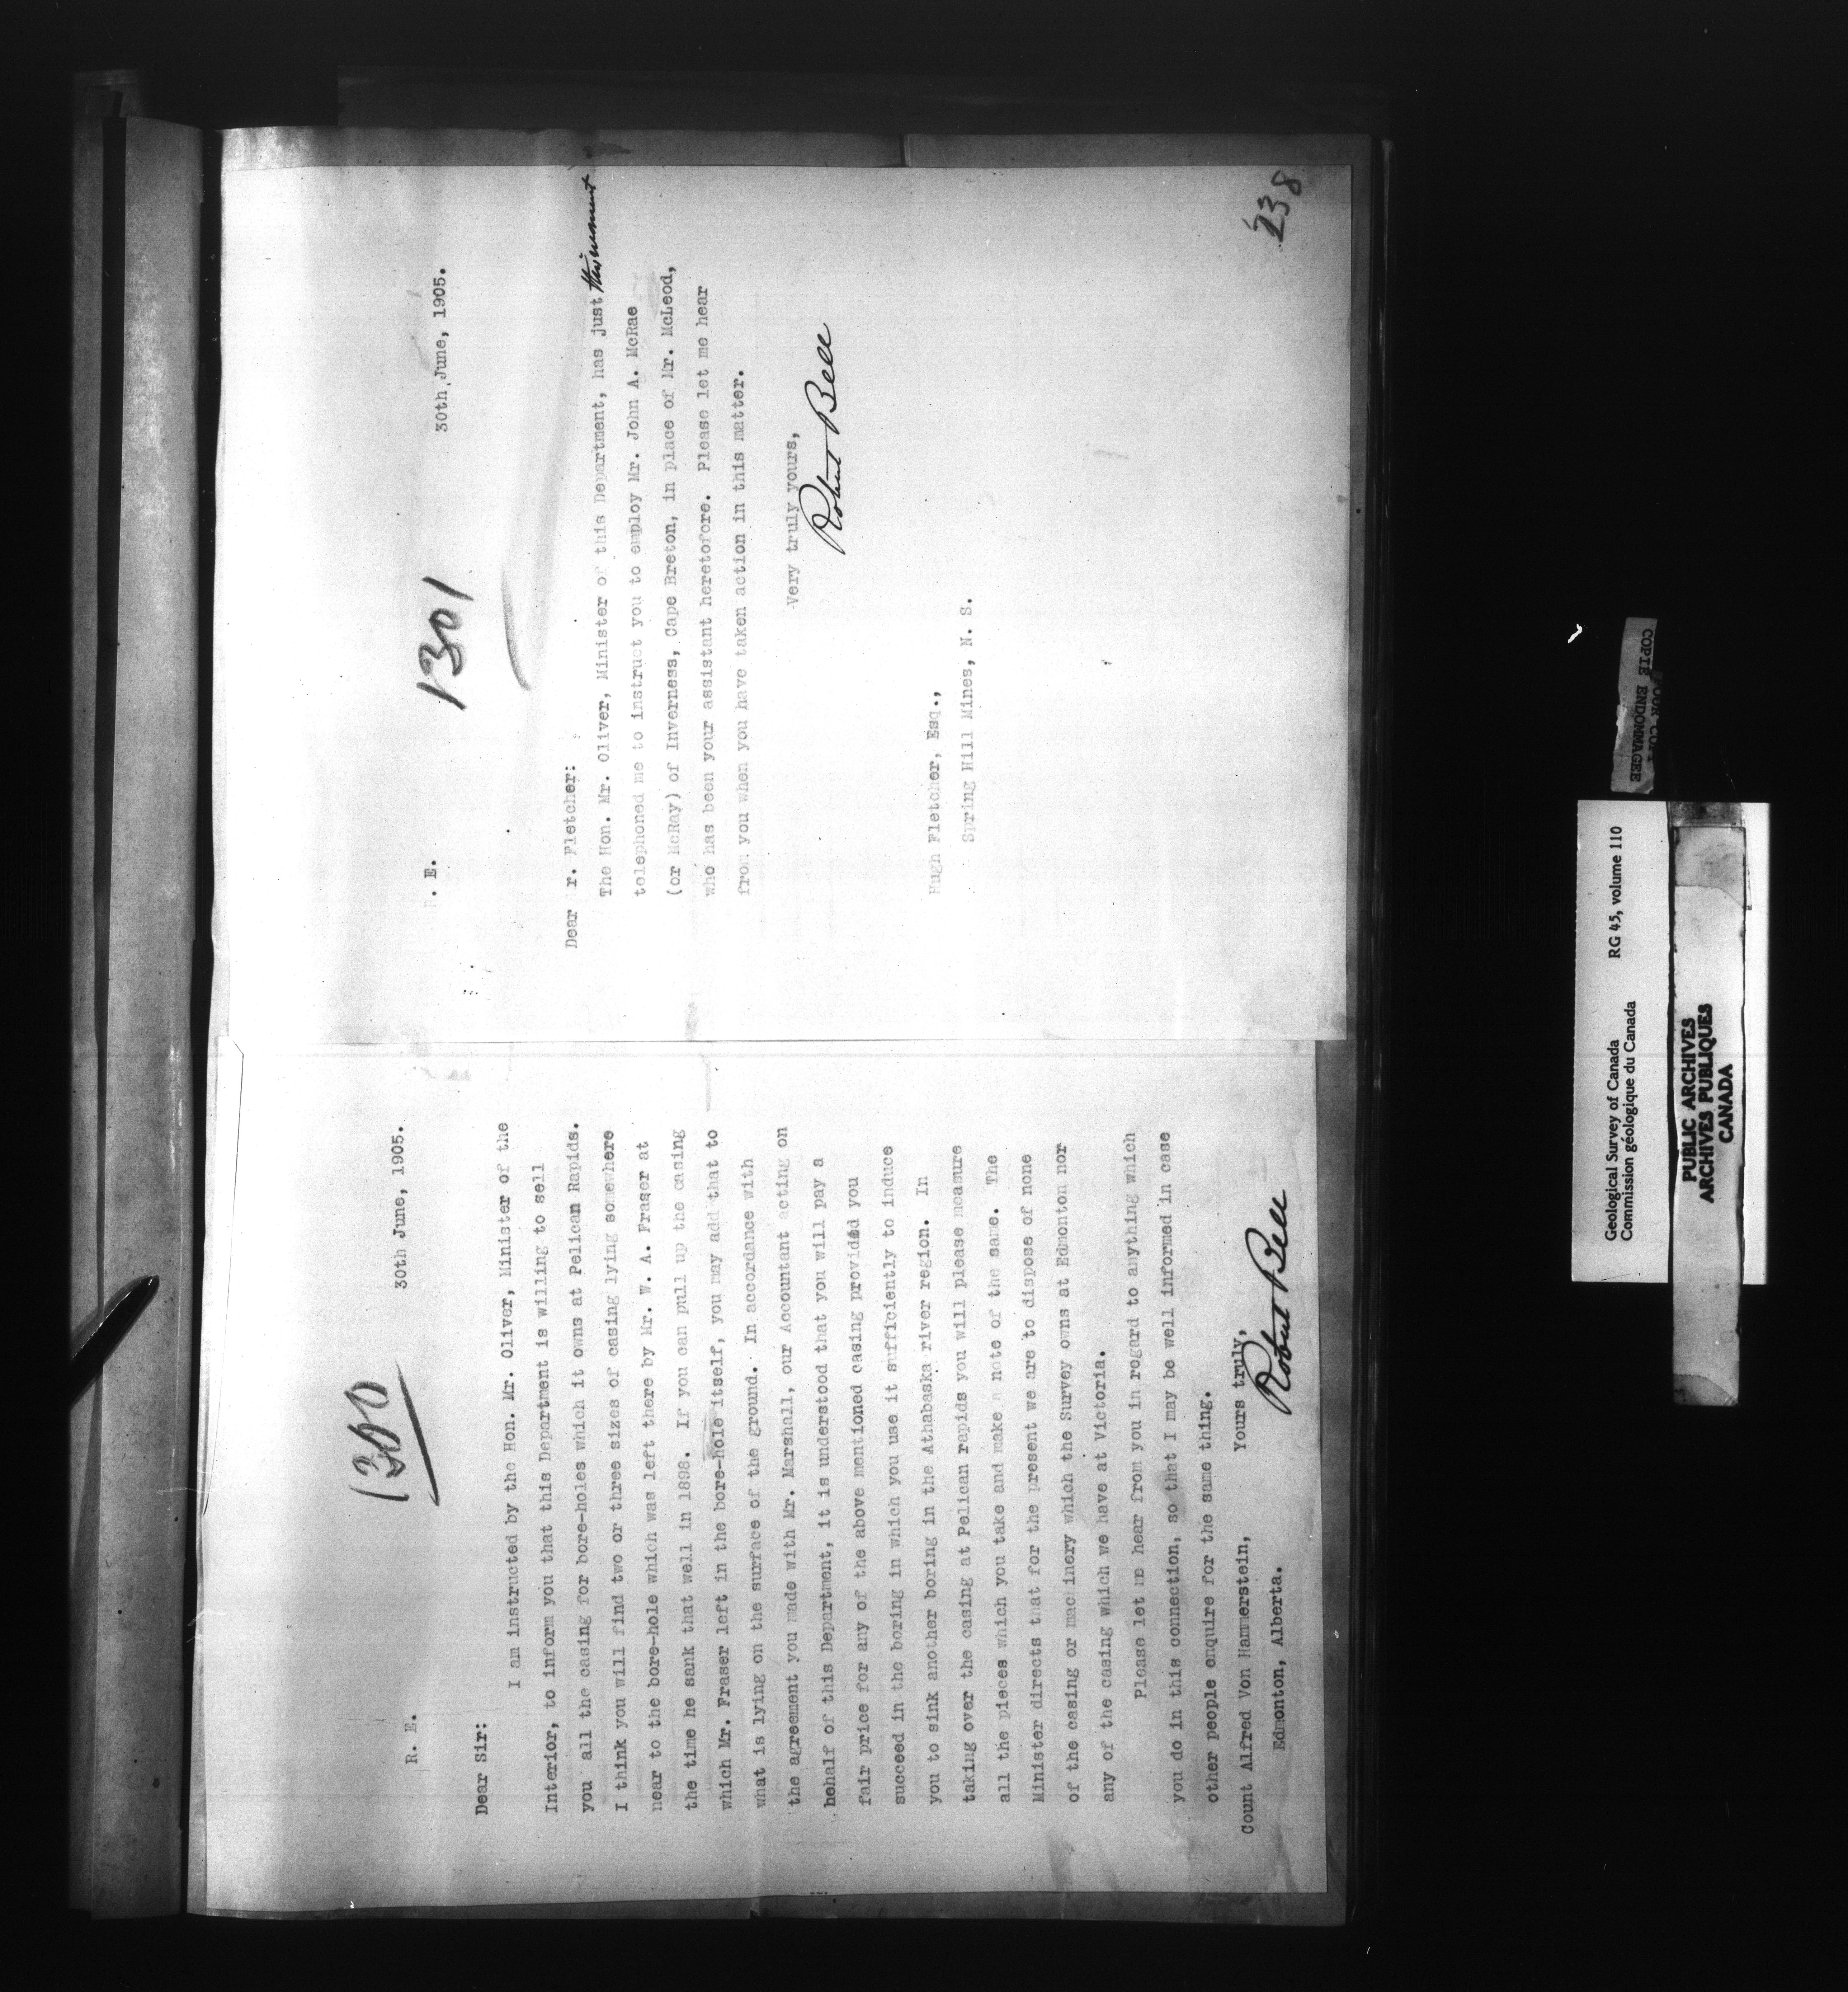 1300
R. E.
30th June, 1905.
Dear Sir:
I am instructed by the Hon. Mr. Oliver, Minister of the
Interior, to inform you that this Department is willing to sell
you all the casing for bore-holes which it owns at Pelican Rapids.
I think you will find two or three sizes of casing lying somewhere
near to the bore-hole which was left there by Mr. W. A. Fraser at
the time he sank that well in 1898. If you can pull up the casing
which Mr. Fraser left in the bore-hole itself, you may add that to
what is lying on the surface of the ground. In accordance with
the agreement you made with Mr. Marshall, our Accountant acting on
behalf of this Department, it is understood that you will pay a
fair price for any of the above mentioned casing provided you
succeed in the boring in which you use it sufficiently to induce
you to sink another boring in the Athabaska river region. In
taking over the casing at Pelican rapids you will please measure
all the pieces which you take and make a note of the same. The
Minister directs that for the present we are to dispose of none
of the casing or machinery which the Survey owns at Edmonton nor
any of the casing which we have at Victoria.
Please let me hear from you in regard to anything which
you do in this connection, so that I may be well informed in case
other people enquire for the same thing.
Yours truly,
Robert Bell
Count Alfred Von Hammerstein,
Edmonton, Alberta.
1301
. E.
30th June, 1905.
Dear r. Fletcher:
The Hon. Mr. Oliver, Minister of this Department, has just this moment
telephoned me to instruct you to employ Mr. John A. McRae
(or McRay) of Inverness, Cape Breton, in place of Mr. McLeod,
who has been your assistant heretofore. Please let me hear
from you when you have taken action in this matter.
Very truly yours,
Robert Bell
Hugh Fletcher, Esq.,
Spring Hill Mines, N. S.
238
COPIE ENDOMMAGEE
Geological Survey of Canada RG 45, volume 110
Commission géologique du Canada
PUBLIC ARCHIVES
ARCHIVES PUBLIQUES
CANADA